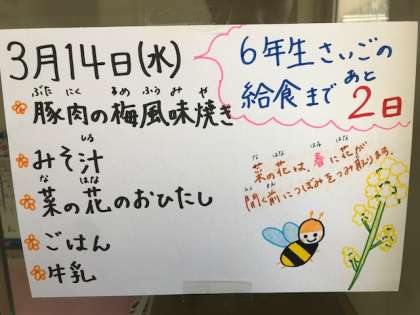 3月14日(水)
ぶた にく うめ ふうみ や
豚肉の梅風味焼き
しる
みそ汁
な はな
菜の花のおひたし
ごはん
牛乳
6年生さいごの
給食まで あと 2日
な はな はる はな
菜の花は、春に花が
開く前につぼみをつみ取ります。